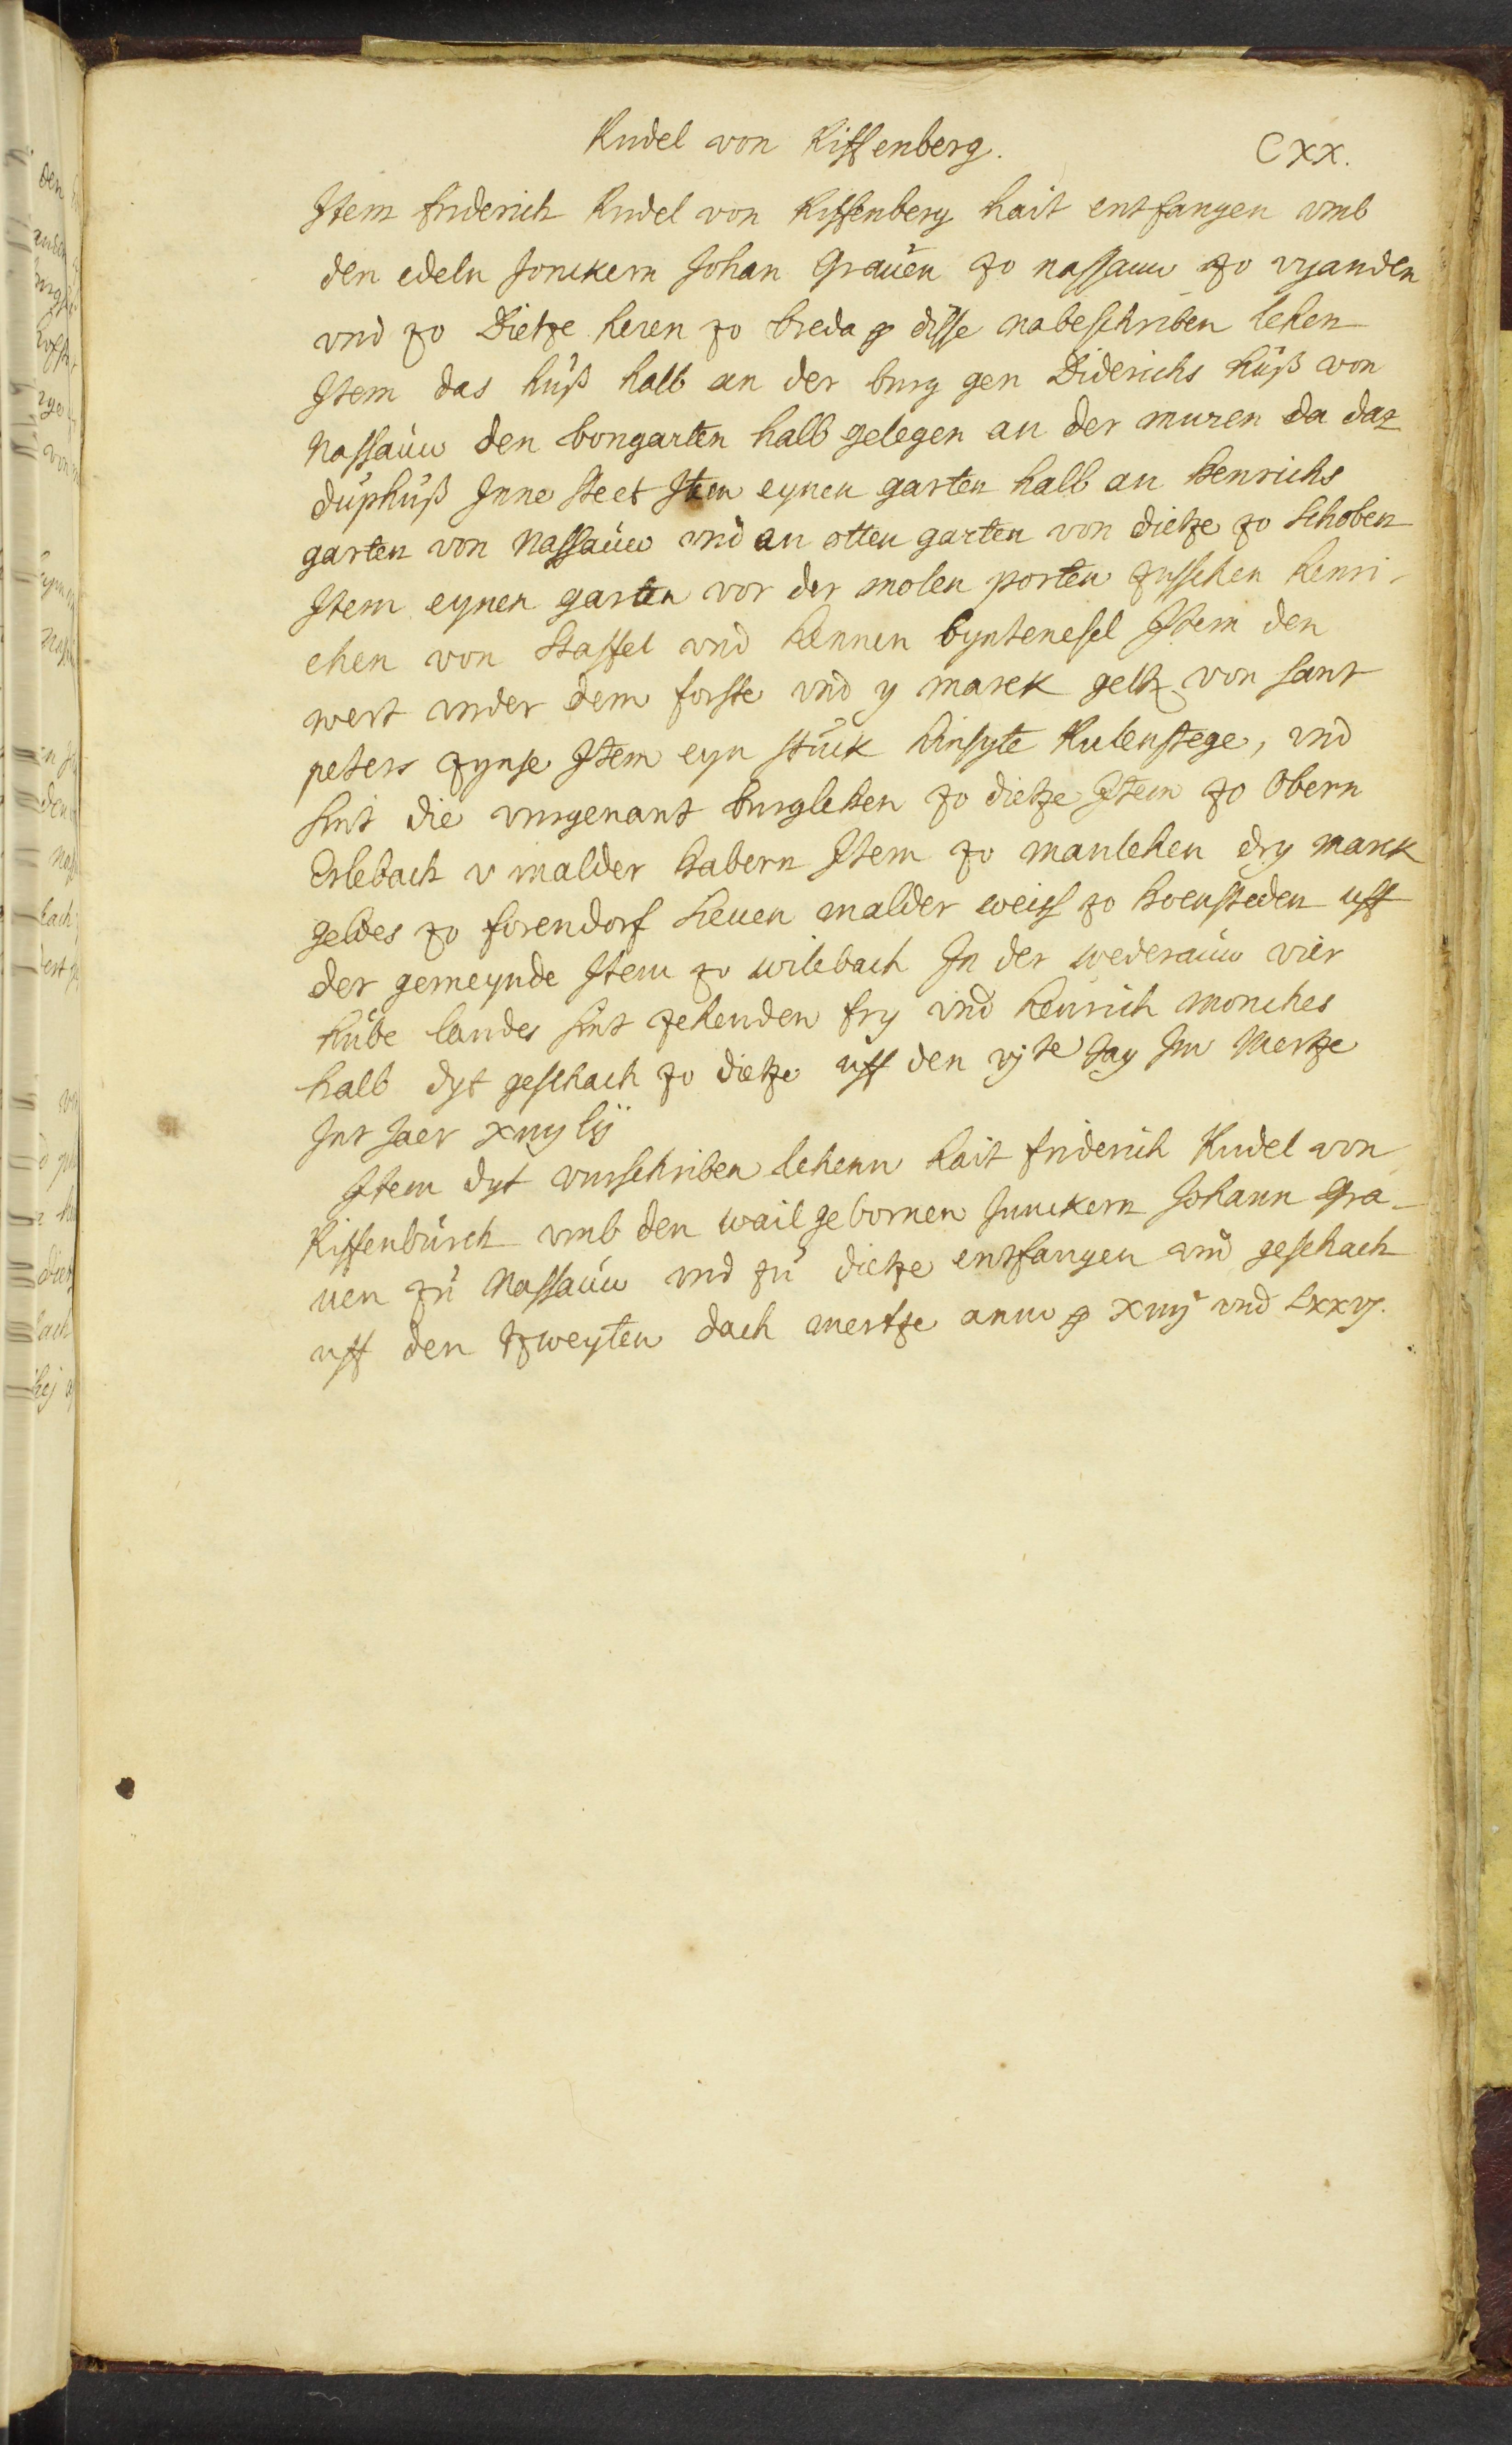 Rudel von Riffenberg. CXX.
Item friderich Rudel von Riffenberg hait entfangen vmb
den edeln Jonckern Johan Grauen zo nassauw zo vyanden
vnd zo Dietze heren zo breda disse nabeschriben lehen
Item das huß halb an der burg gen Diderichs huß von
Nassauw den bongarten halb gelegen an der muren da daz
duphuß Jnne steet Item eynen garten halb an henrichs
garten von Nassauw vnd an otten garten von dietze zo Schoben
Item eynen garten vor der molen porten zusschen henri-
chen von Staffel vnd hennen byntenesel Item den
wert vnder dem forste vnd ij marck geltz von sant
peters zynse Item eyn stuck hinsyte Kulenstege, vnd
sint die vurgenant burglehen zo dietze Item zo Obern
Erlebach v malder habern Item zo manlehen dry marck
geldes zo forendorf Seuen malder weiss zo hoensteden uff
der gemeynde Item zo wilebach In der wederauw vier
hube landes sint zehenden fry vnd henrich monches
halb dyt geschach zo dietze uff den vjte tag Im Mertze
Int Jaer xiiij lij
Item dyt vurschriben lehenn hait friderich Rudel von
Riffenburch vmb den wailgebornen Junckern Johann Gra-
uen zu Nassauw vnd zu dietze entfangen vnd geschach
uff den tzweyten dach mertze anno xiiij vnd Lxxvj.